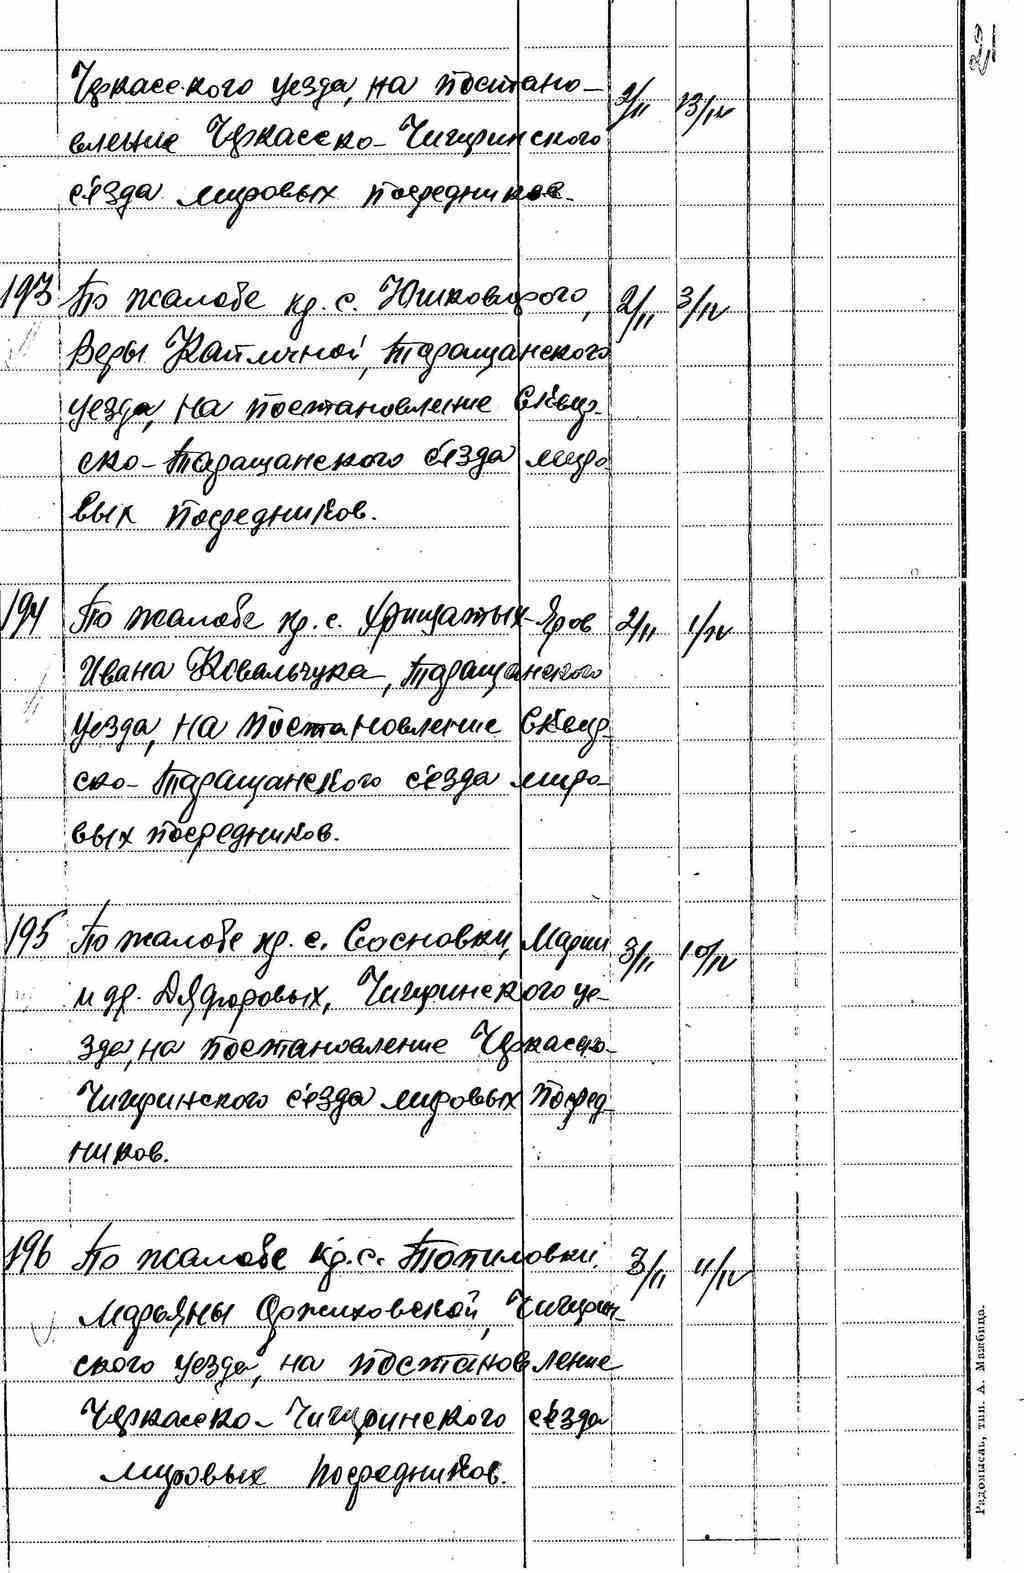 21
Черкасского уезда, на постано- 2/II 13/IV
вление Черкасско-Чигиринского
с'езда мировых посредников.
193 По жалобе кр. с. Юшков рогого, 2/II 3/IV
Веры Капличной, Таращанского
уезда, на постановление Сквир-
ско-Таращанского с'езда миро
вых посредников.
194 По жалобе кр. с. Хрищатых-Яров 2/II 1/IV
Ивана Ковальчука, Таращанского
уезда, на постановление Сквир-
ско-Таращанского с'езда миро-
вых посредников.
195 По жалобе кр. с. Сосновки, Марии 3/II 10/IV
и др. Чигиринского уе-
зда, на постановление Черкасско-
Чигиринского с'езда мировых посред-
ников.
196 По жалобе кр. с. Топиловки, 3/II 4/IV
Марьяны Оржиховской, Чигирин-
ского уезда, на постановление
Черкасско-Чигиринского с'езда
мировых посредников.
Радомысль, тип. А. Мажбица.